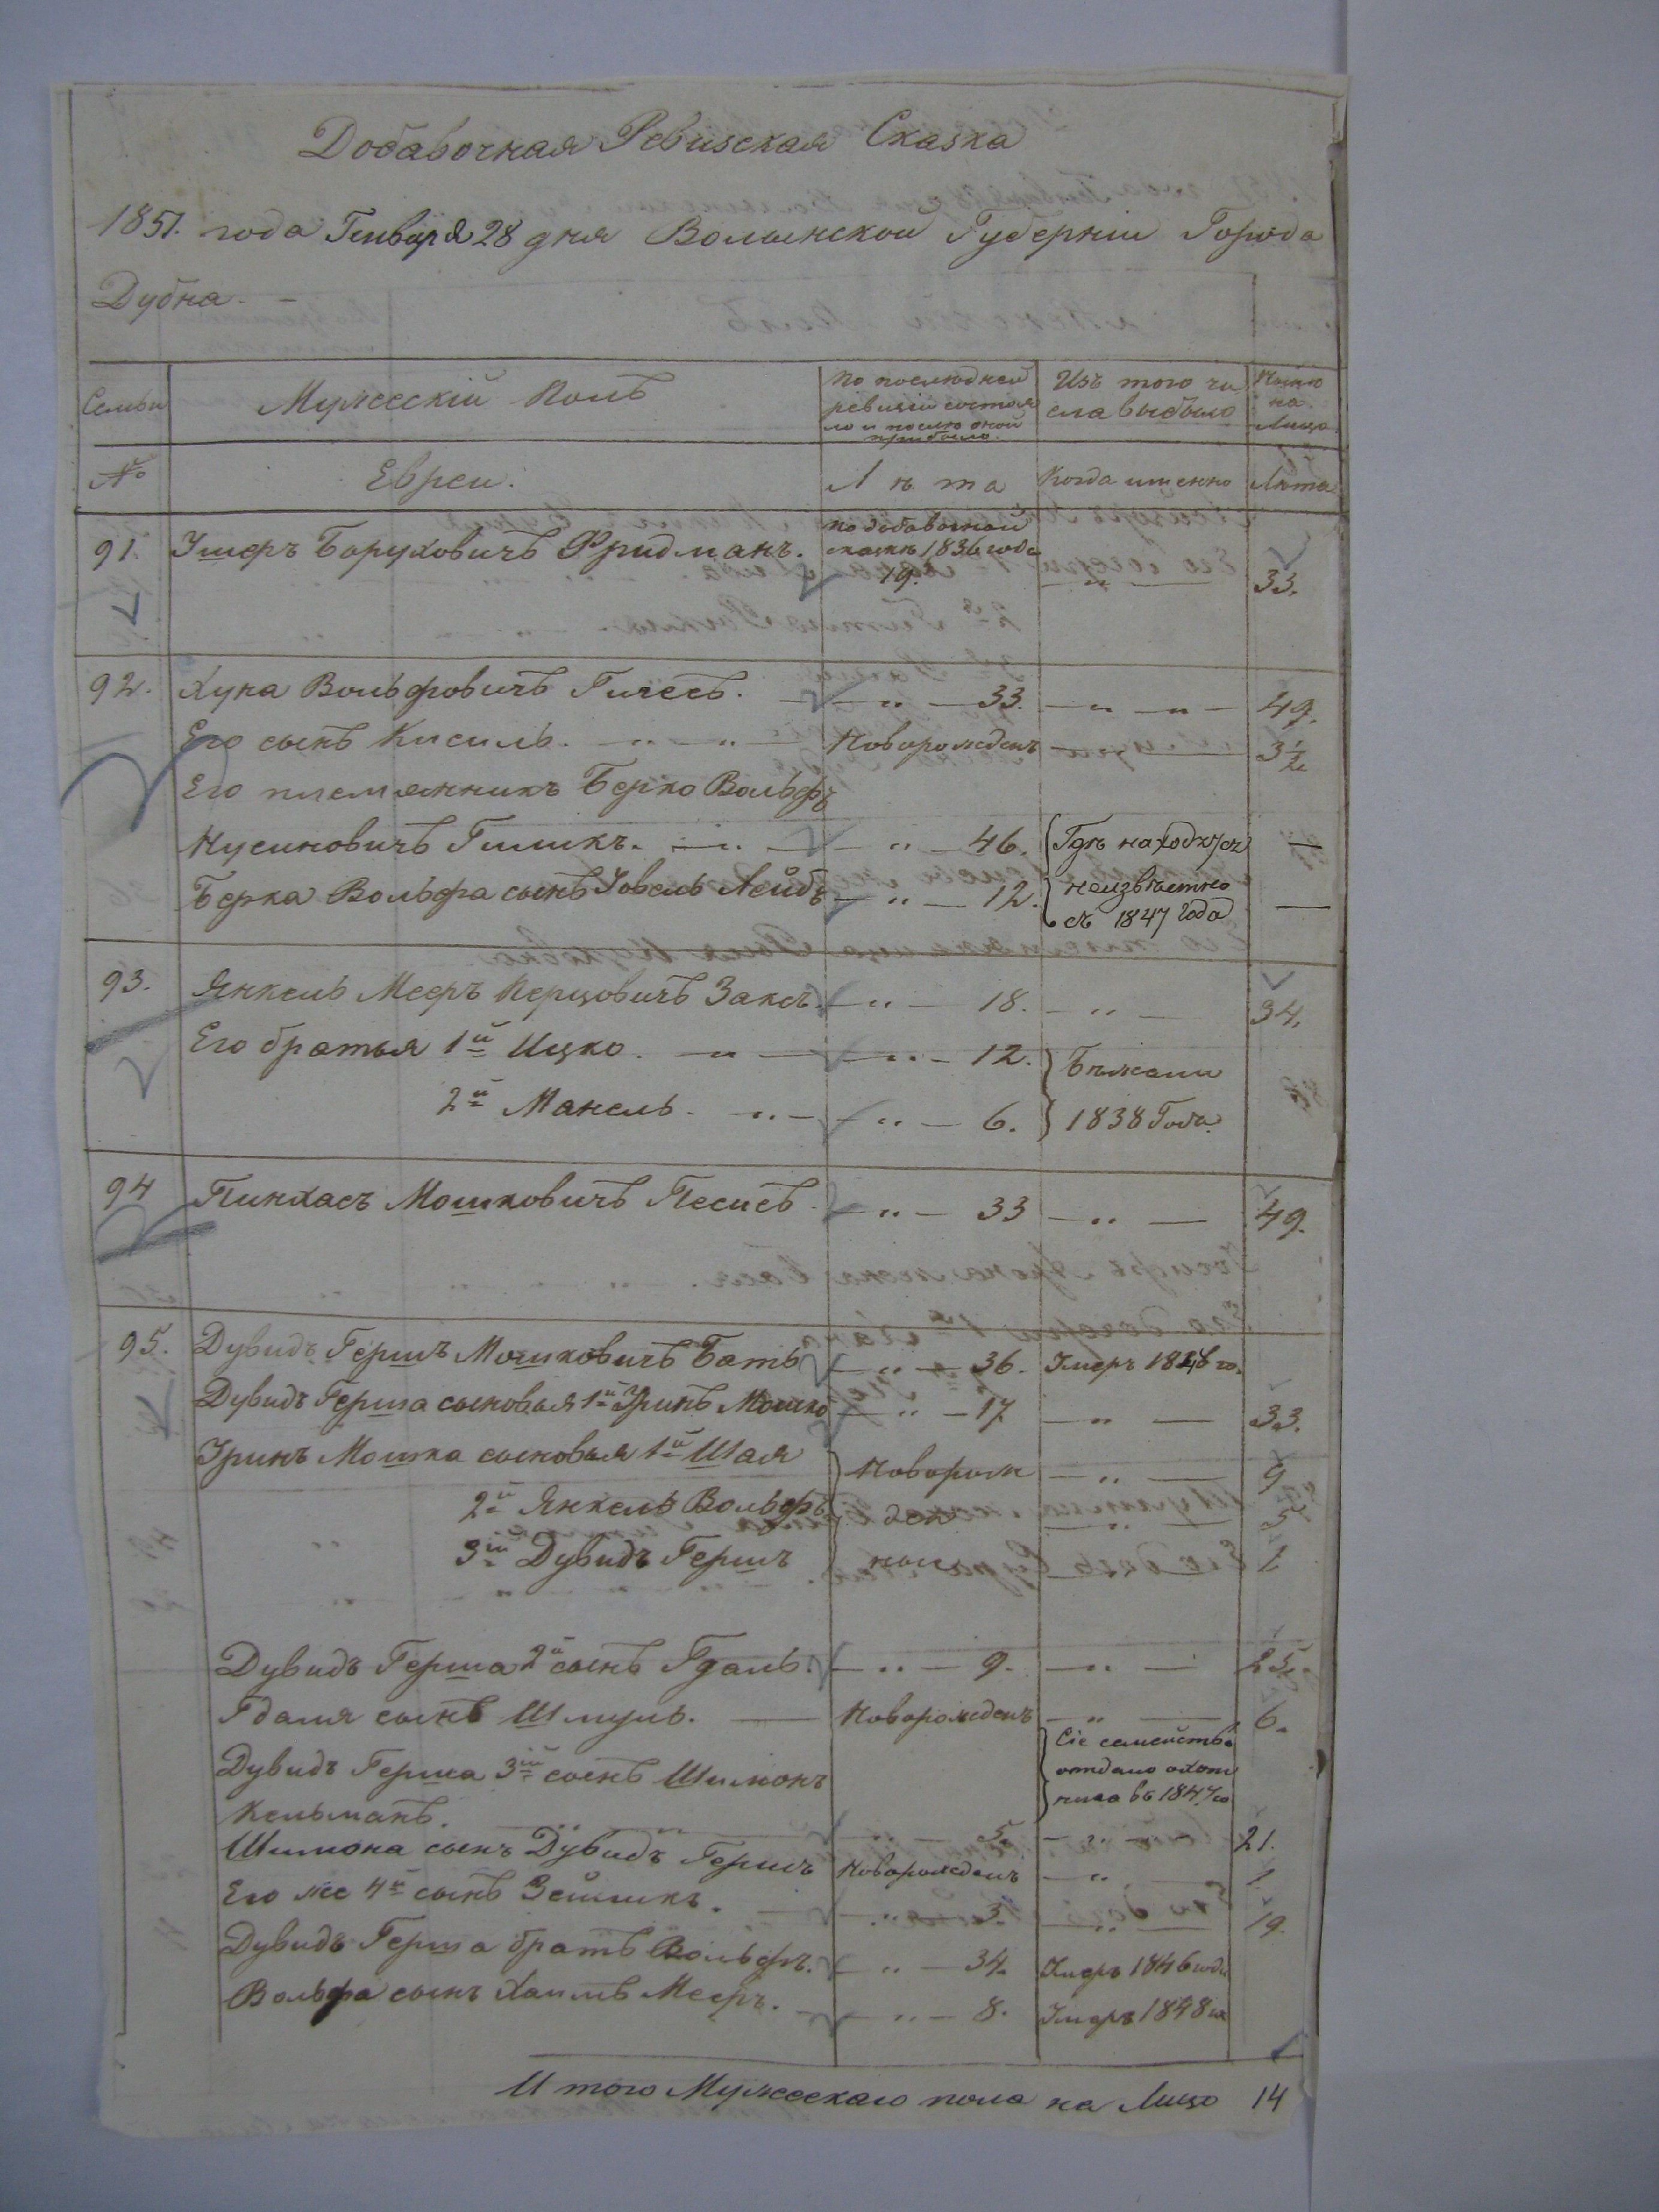 Добавочная Ревизская Сказка
1851. года Генваря 28 дня Волынской Губернiи Города
Дубна.
Семьи
Мужескiй Полъ
По последней
ревизiи состоя
ло и после оной
прибыло.
Изъ того чи
сла выбыло
Ныне
на
Лицо
№
Евреи.
Лета
Когда именно
Лета
91. Ушеръ Боруховичъ Фридманъ.
по добавочной
сказке 1836 года
19. — „ — 33.
92. Хуна Вольфовичъ Гилесъ. — „ — 33. — „ — „ — 49.
Его сынъ Кисиль. — „ — „ — Новорожденъ — 3½
Его племянникъ Берко Вольфъ
Нусиновичъ Гиликъ. — „ — — „ — 46. Где находятся —
Берка Вольфа сынъ Iовель Лейбъ — „ — 12. неизвестно —
съ 1847 года
93. Янкель Мееръ Перцовичъ Заксъ. — „ — 18. — „ — 34.
Его братья 1й Ицко. — „ — — „ — 12. Бежали
2й Манель. — „ — — „ — 6. 1838 Года.
94 Пинхасъ Мошковичъ Песисъ — „ — 33 — „ — 49.
95. Дувидъ Гершъ Мошковичъ Батъ — „ — 36. Умеръ 1848 го.
Дувидъ Герша сыновья 1й Уринъ Мошко — „ — 17 — „ — 33.
Уринъ Мошка сыновья 1й Шая Новорож — „ — 9
2й Янкель Вольфъ ден — „ — 5
3й Дувидъ Гершъ ные 1
Дувидъ Герша 2й сынъ Гдаль. — „ — 9. — „ — 25.
Гдаля сынъ Шмуль. — Новорожденъ — „ — 6.
Сiе семейство
Дувидъ Герша 3й сынъ Шимонъ отдано охот
ника въ 1847 го
Кельманъ. — „ — „ — 5. — „ — 21.
Шимона сынъ Дувидъ Гершъ Новорожденъ — „ — 1
Его же 4й сынъ Зейликъ. — „ — 3. — „ — 19.
Дувидъ Герша братъ Вольфъ. — „ — 34. Умеръ 1846 года
Вольфа сынъ Хаимъ Мееръ. — „ — 8. Умеръ 1848 го
Итого Мужескаго пола на Лицо 14